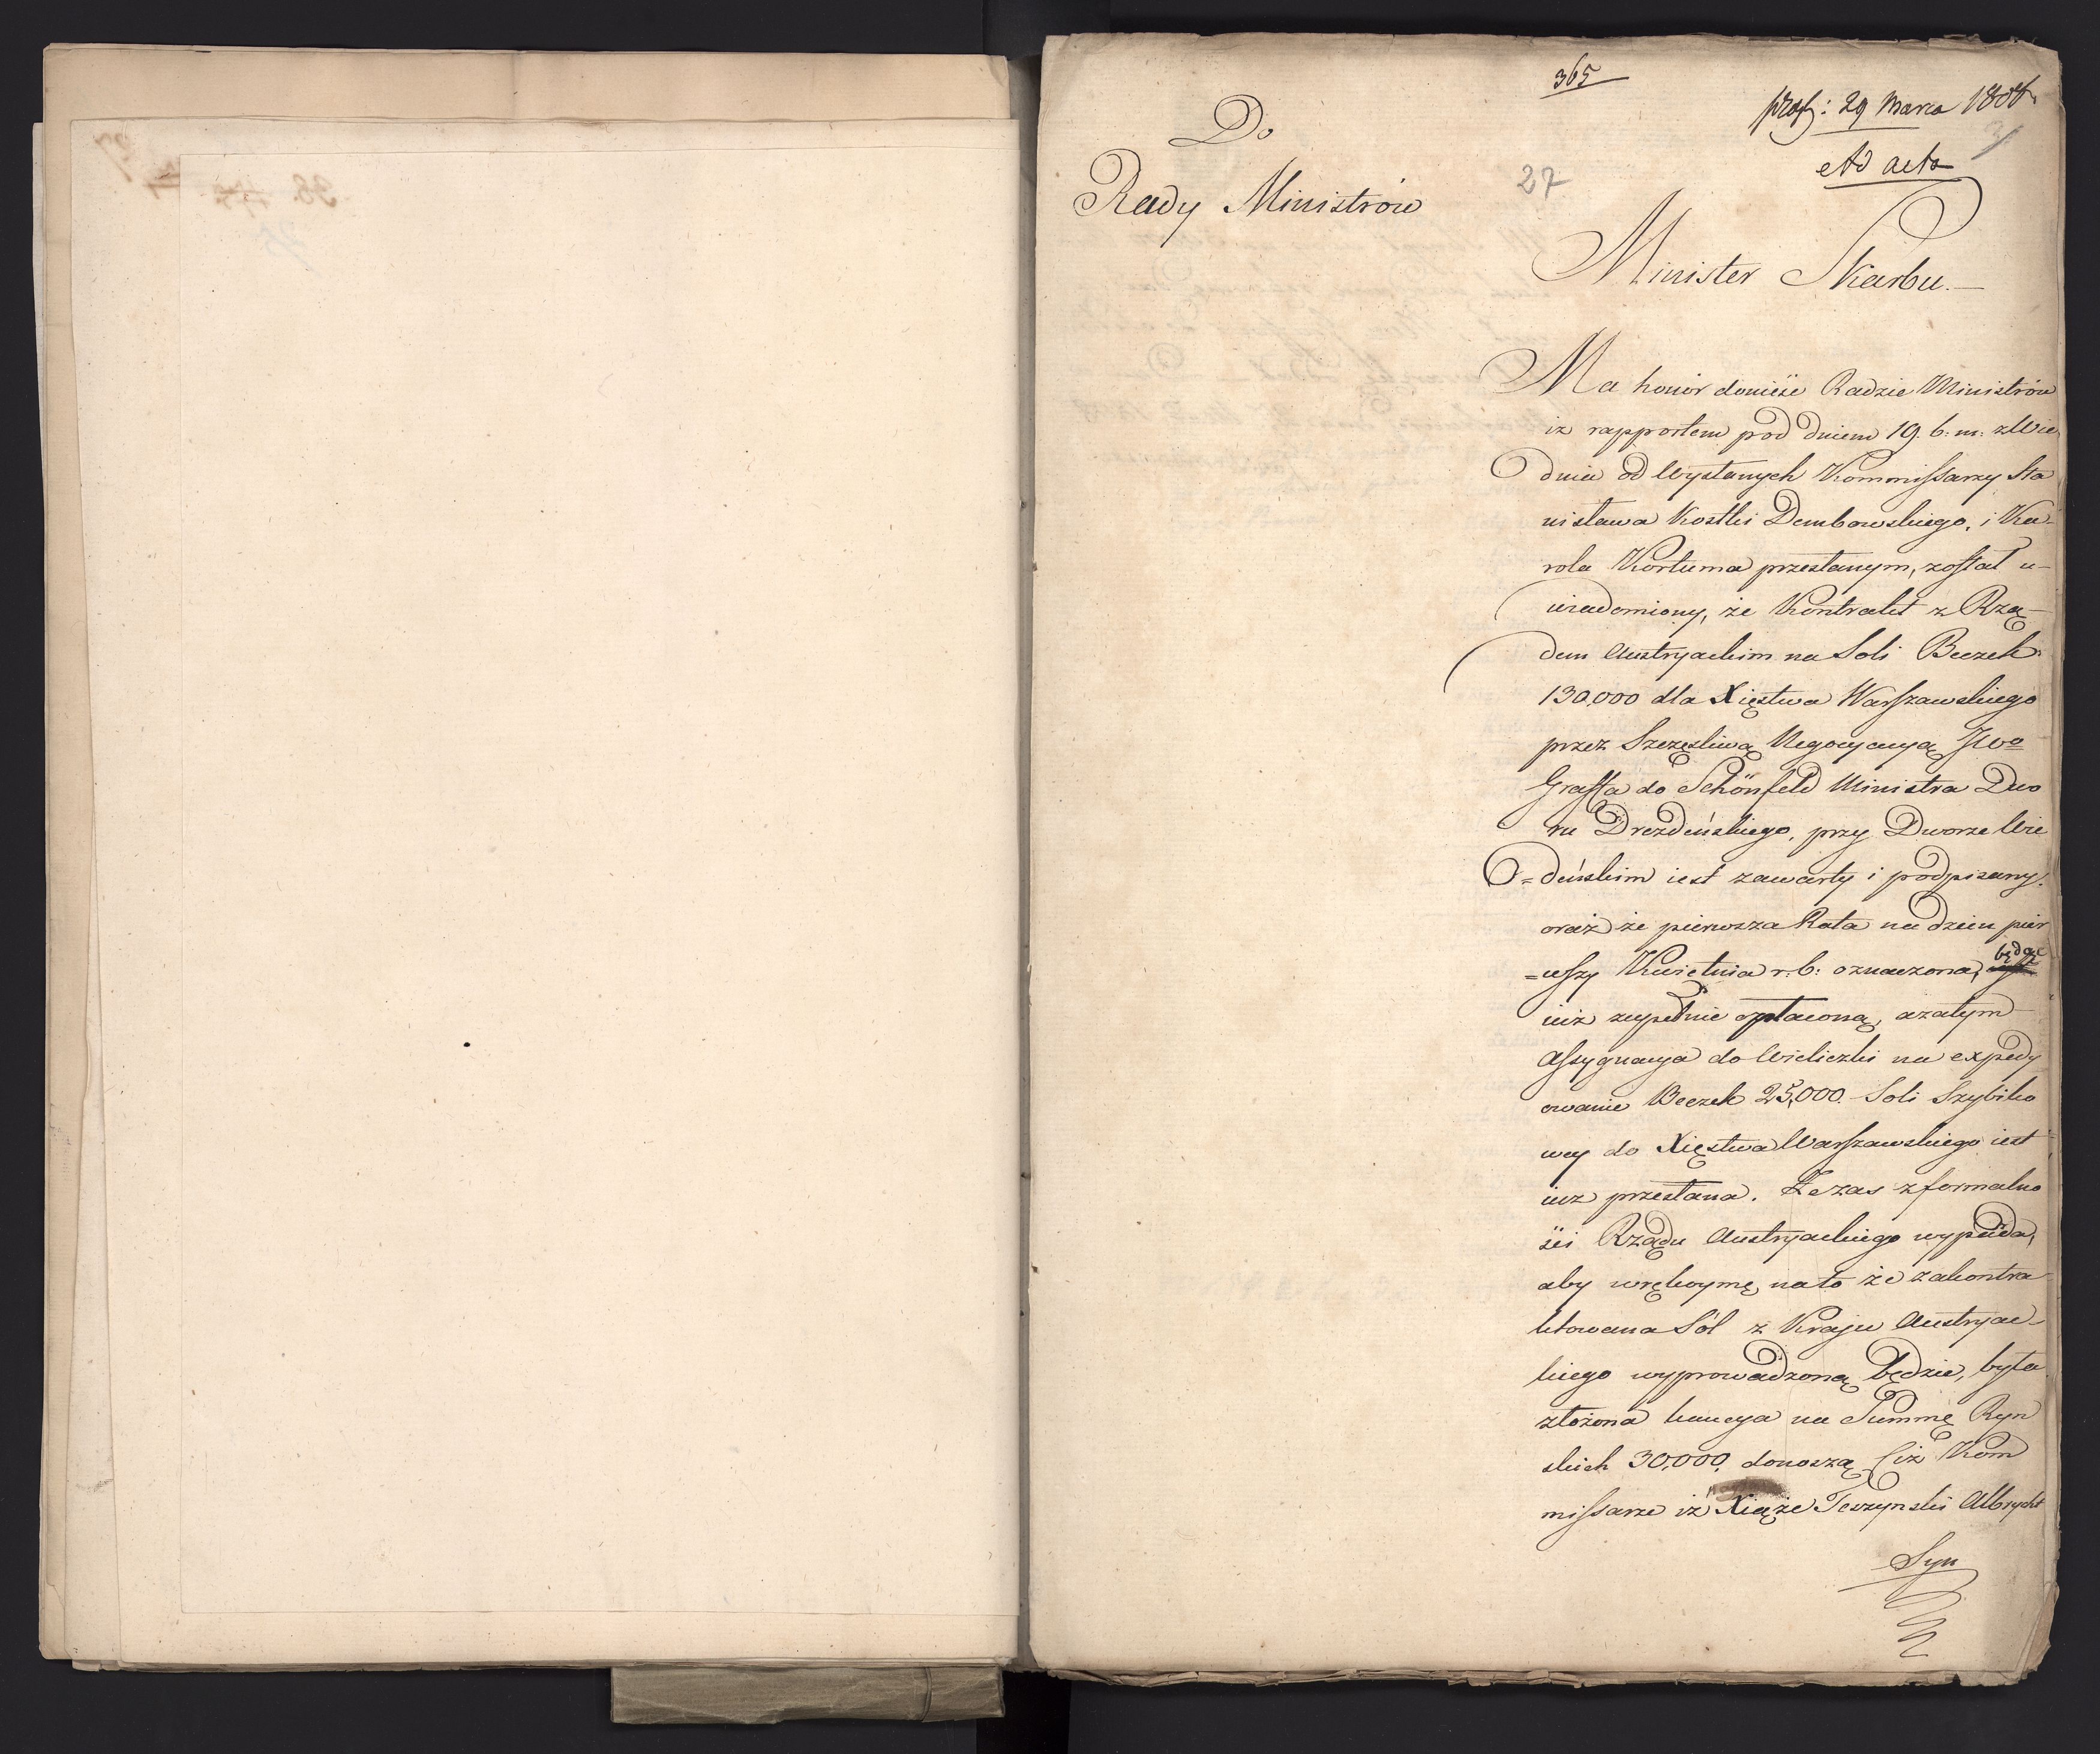 365
27
Do
Rady Ministrów
29 Marca 1808
Ad acta
Minister Skarbu.
Ma honór donieść Radzie Ministrów
iż rapportem pod Dniem 19. b: m: z Wie
dnia od Wysłanych Kommissarzy Sta
nisława Kostki Dembowskiego, i Ka-
rola Kortuma przesłanym, został u-
wiadomiony, że Kontrakt z Rzą-
dem Austryackim na Soli Beczek
130,000 dla Xięstwa Warszawskiego
przez Szczęsliwą Negocyacyą JWo
Graffa de Schönfeld Ministra Dwo
ru Drezdeńskiego, przy Dworze Wie
=deńskim iest zawarty i podpisany.
oraz że pierwsza Rata na dzien pier
=wszy Kwietnia r: b: oznaczona, będąc
iuż zupełnie opłaconą, azatym
Assygnacya do Wieliczki na expedy
owanie Beczek 25,000. Soli Szybiko
wey do Xięstwa Warszawskiego iest
iuż przesłana. Że zas z formalno
ści Rządu Austryackiego wypada,
aby wrękoymę na to że zakontra-
ktowana Sól z Kraju Austryac-
kiego wyprowadzoną będzie, była
złożona kaucya na Summę Ryn
skich 30,000, donoszą Ciż Kom
missarze iż Xiąże Teszynski Albrycht
Syn